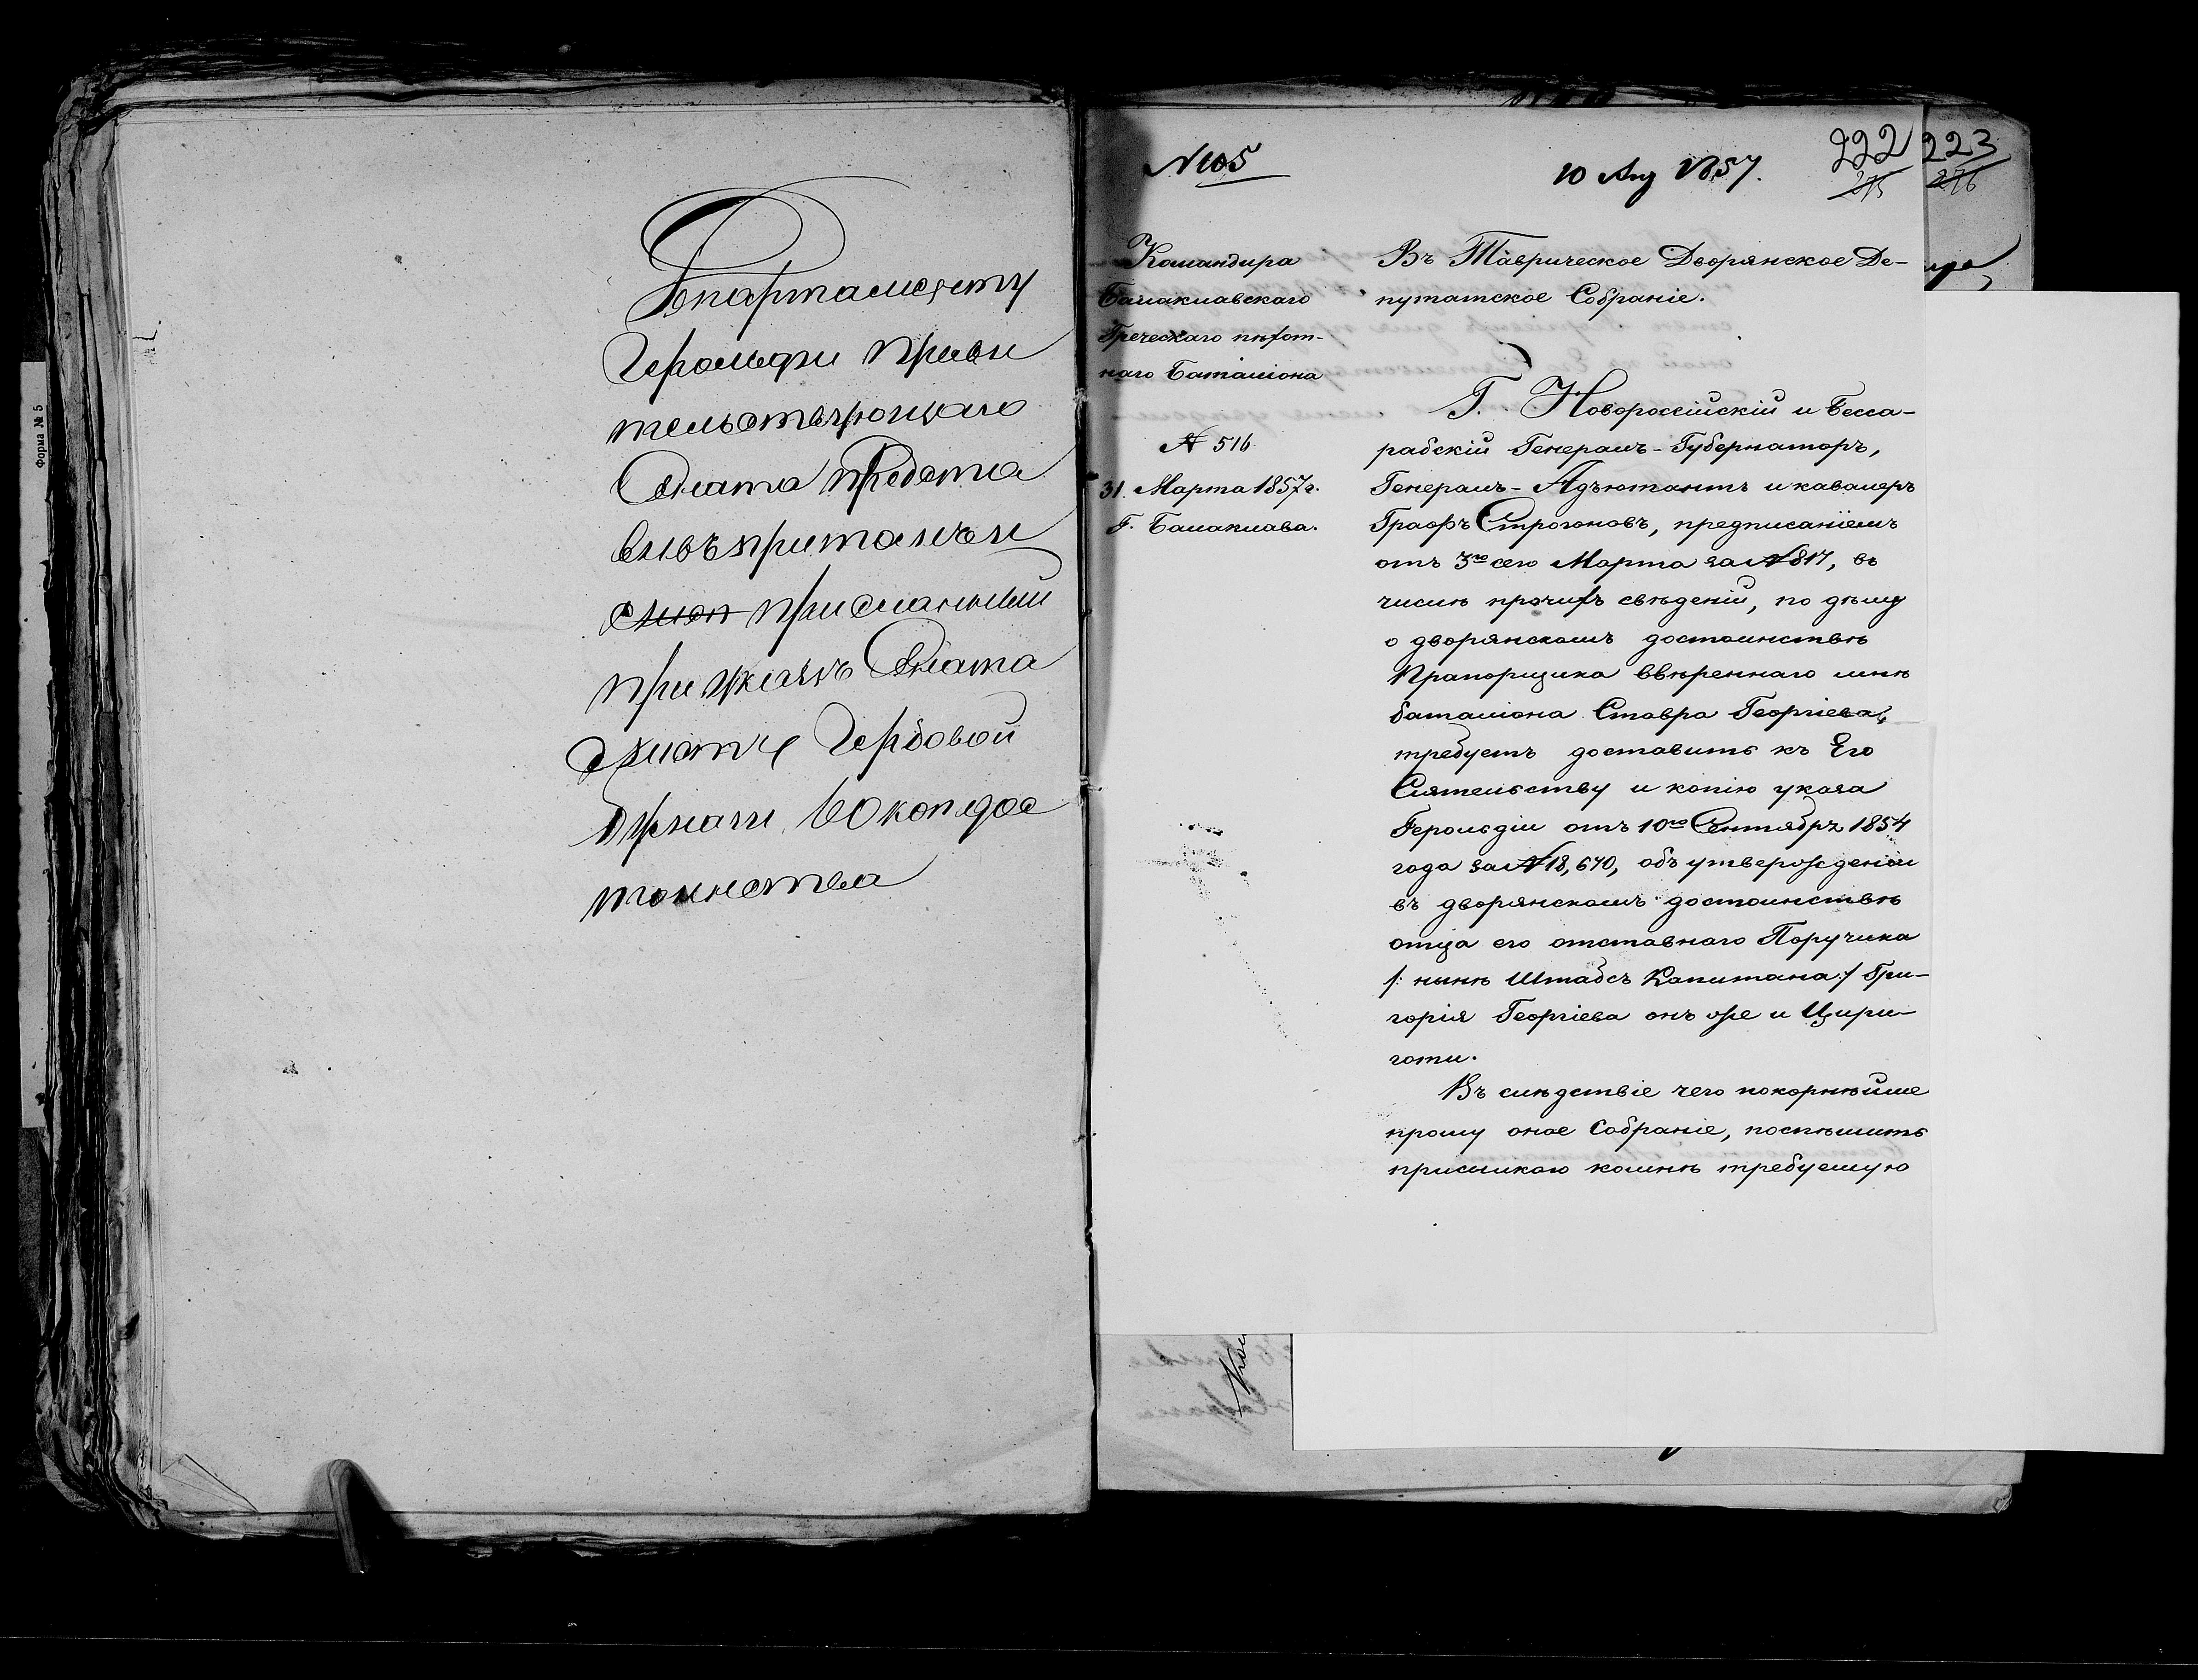 Форма № 5
Департаменту
Герольдіи Прави
тельствующаго
Сената Предста
вивъ квитанціи
присланный
при Указѣ Сената
Гербовой
бумаги 60 коп дос
тоинства
N 105
10 Апр 1857.
222
275
223
276
Командира
Балаклавскаго
Греческаго пѣхот-
наго Баталіона
№ 516
31 Марта 1857 г.
Г. Балаклава.
Въ Таврическое Дворянское Де-
путатское Собраніе.
Г. Новороссійскій и Бесса-
рабскій Генералъ-Губернаторъ,
Генералъ-Адъютантъ и кавалеръ
Графъ Строгоновъ, предписаніемъ
отъ 3го сего Марта за № 817, въ
числѣ прочихъ свѣдений, по дѣлу
о дворянскомъ достоинствѣ
Прапорщика ввѣреннаго мнѣ
баталіона Ставра Георгіева,
требуетъ доставить къ Его
Сіятельству и копію указа
Герольдіи отъ 10го Сентября 1854
года за № 18,670, объ утвержденіи
въ дворянскомъ достоинствѣ
отца его отставнаго Поручика
/: нынѣ Штабсъ Капитана :/ Гри-
горія Георгіева онъ же и Цири-
готи.
Въ слѣдствіе чего покорнѣйше
прошу оное Собраніе, поспѣшить
присылкою комнѣ требуемую